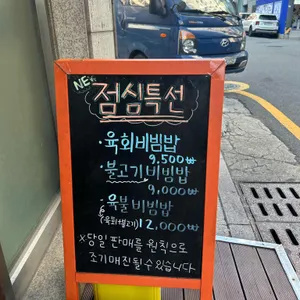 NEW
점심특선
·육회비빔밥
9,500₩
·불고기비빔밥
9,000₩
·육불비빔밥
(육회샐러) 12,000₩
※당일 판매를 원칙으로
조기매진될 수 있습니다